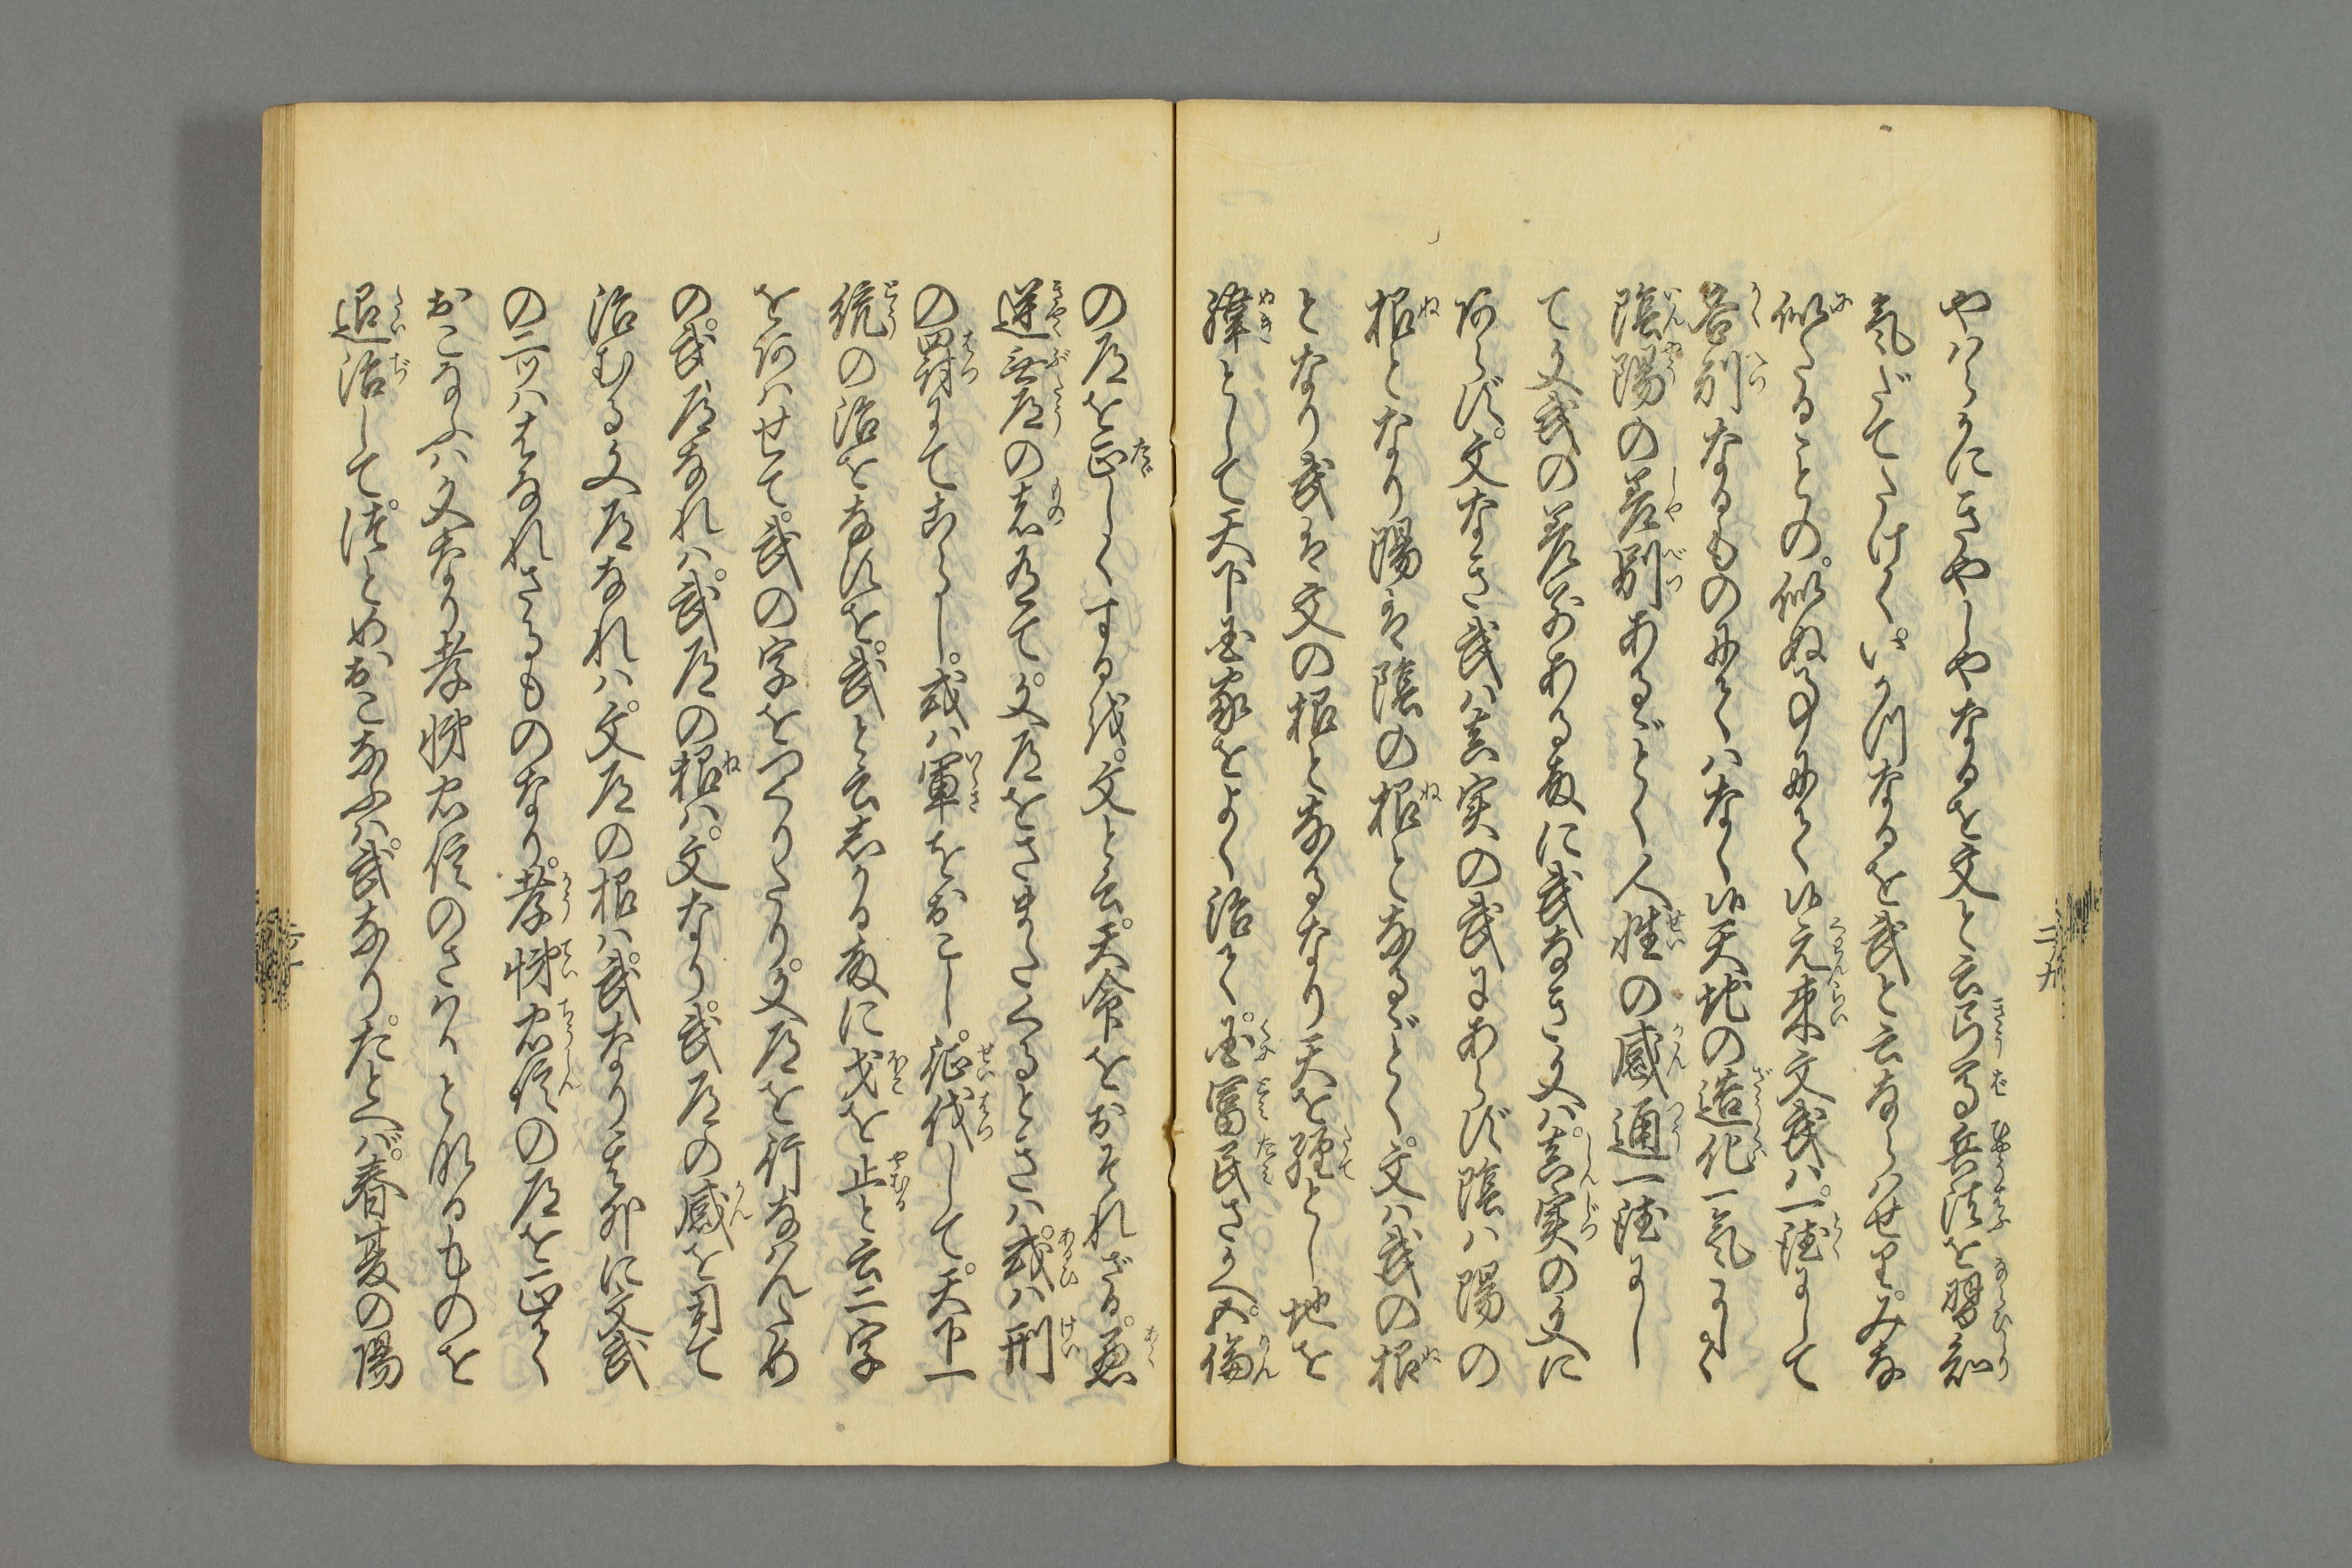 やはらかにきやしやなるを文と云弓馬兵法を習知
気だてたけく。いかつなるを武と云ならはせり。みな
似たることの。似ぬ事にてく候元来文武は。一徳にして
各別なるものにてはなく候天地の造化一気にして
陰陽の差別あるごとく人性の感通一徳にし
て文武の差別ある故に武なき文は。真実の文に
あらず。文なき武は真実の武にあらず陰は陽の
根となり陽は陰の根となるごとく。文は武の根
となり武は文の根となるなり天を経とし地を
緯として天下国家をよく治て。国富民さかへ。五倫
の道を正しくするを。文と云。天命をおそれざる。悪
逆無道の者有て。文道をさまたくるときは。或は刑
の罰にてこらし。或は軍をおこし。征伐して。天下一
統の治をなすを。武と云しかる故に戈を止と云二字
をあはせて。武の字をつくりたり。文道を行なはんため
の。武道なれは。武道の根は。文なり。武道の威を用て
治むる文道なれは。文道の根は。武なり其外に文武
の二つははなれさるものなり。孝悌忠信の道を正しく
おこなふは文なり孝悌忠信のさはりとなるものを
退治して。つとめおこなふは。武なり。たとへば。春夏の陽
二ノ九